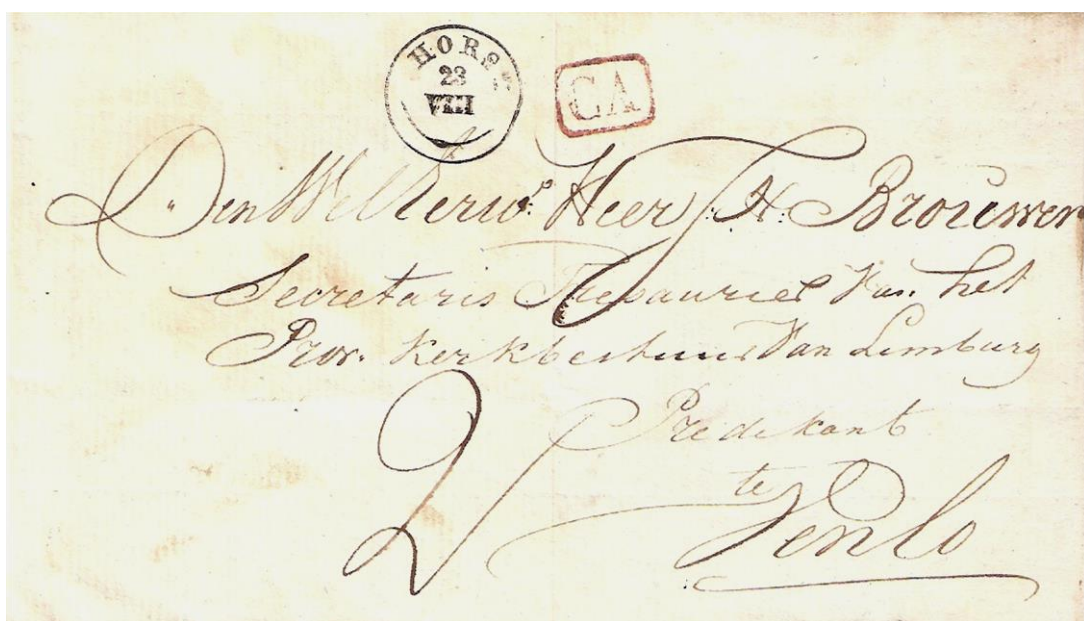 HORST
23
VIII
CA
Den WelEerw. Heer H. Brouwer
Secretaris Thesaurier Van het
Prov. Kerkbestuur Van Limburg
2
Predikant
te
Venlo